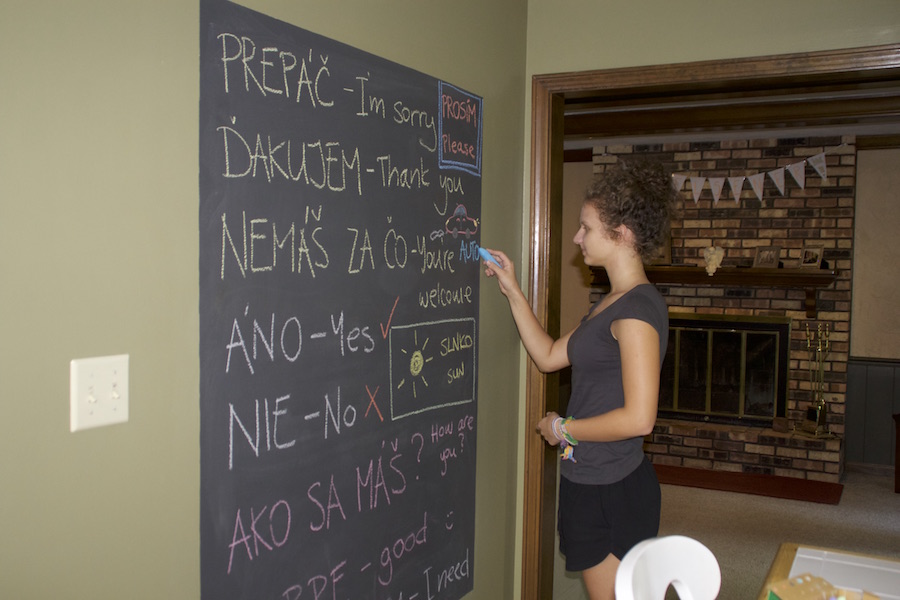 PREPÁČ - I'm sorry
PROSÍM
Please
ĎAKUJEM - Thank you
NEMÁŠ ZA ČO - You're
welcome
AUTO
ÁNO - Yes
NIE - No
SLNKO
SUN
AKO SA MÁŠ? How are
you?
- good
- I need